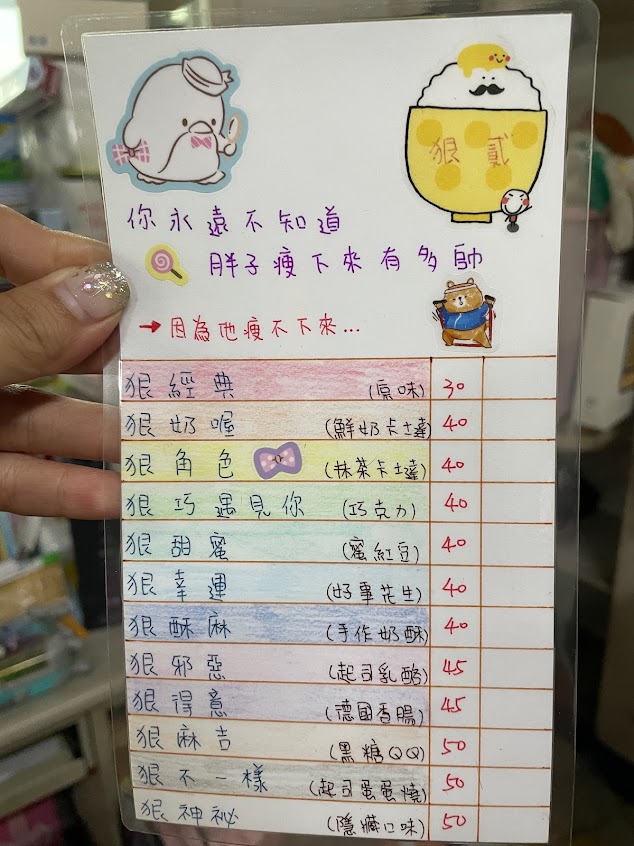 狠 貳
你永遠不知道
胖子瘦下來有多帥
→因為他瘦不下來...
狠經典 (原味) 30
狠奶喔 (鮮奶卡士達) 40
狠角色 (抹茶卡士達) 40
狠巧遇見你 (巧克力) 40
狠甜蜜 (蜜紅豆) 40
狠幸運 (好事花生) 40
狠酥麻 (手作奶酥) 40
狠邪惡 (起司乳酪) 45
狠得意 (德國香腸) 45
狠麻吉 (黑糖QQ) 50
狠不一樣 (起司蛋蛋燒) 50
狠神祕 (隱藏口味) 50